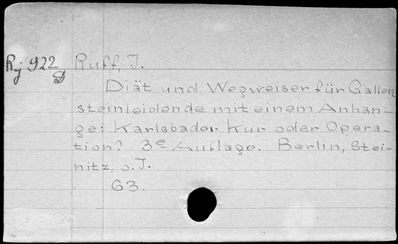 Rj 922 Ruff, J.
D
Diät und Wegweiser für Gallen
steinleidende mit einem Anhan-
ge: Karlsbader Kur oder Opera-
tion? 3e Auflage. Berlin, Stei-
nitz, o.J.
63.